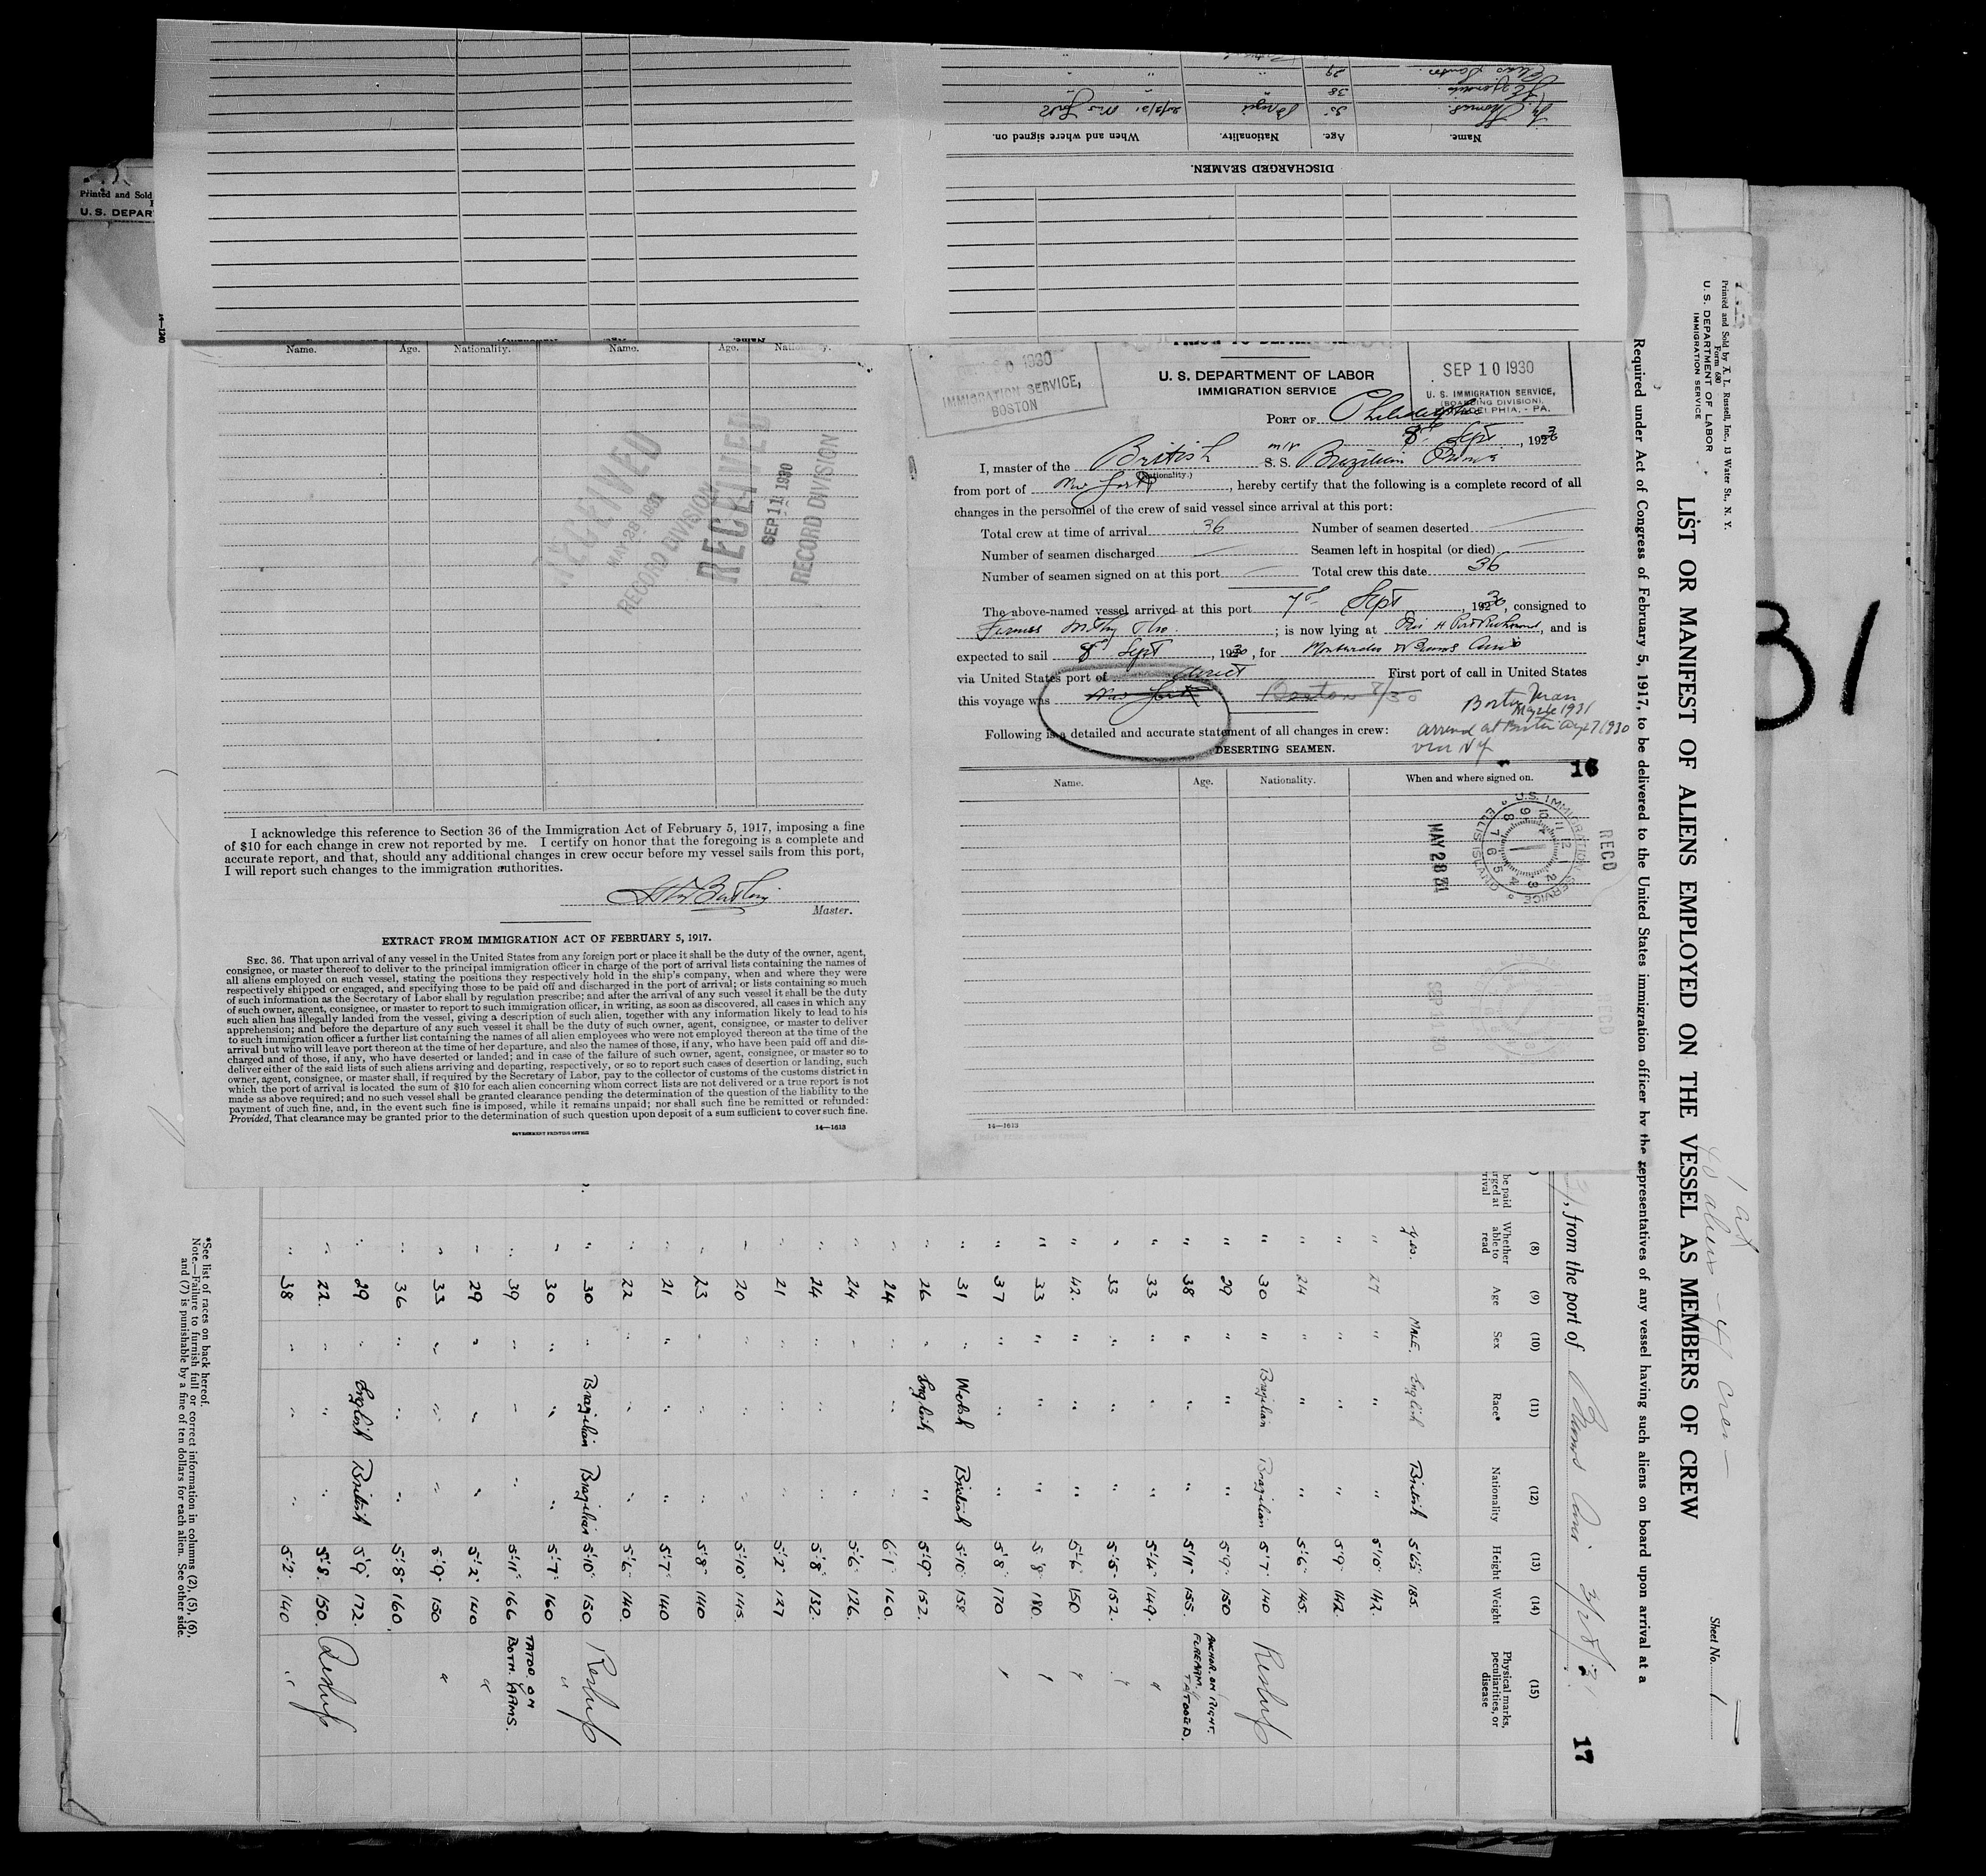 Printed and Sold
U. S. DEPAR
DISCHARGED SEAMEN.
Name.
Age.
Nationality.
When and where signed on.
35
38
29
14—1240
Name. Age. Nationality. Name. Age.
RECEIVED
MAY 28 1931
RECORD DIVISION
RECEIVED
SEP 11 1930
RECORD DIVISION
I acknowledge this reference to Section 36 of the Immigration Act of February 5, 1917, imposing a fine
of $10 for each change in crew not reported by me. I certify on honor that the foregoing is a complete and
accurate report, and that, should any additional changes in crew occur before my vessel sails from this port,
I will report such changes to the immigration authorities.
Master.
EXTRACT FROM IMMIGRATION ACT OF FEBRUARY 5, 1917.
SEC. 36. That upon arrival of any vessel in the United States from any foreign port or place it shall be the duty of the owner, agent,
consignee, or master thereof to deliver to the principal immigration officer in charge of the port of arrival lists containing the names of
all aliens employed on such vessel, stating the positions they respectively hold in the ship's company, when and where they were
respectively shipped or engaged, and specifying those to be paid off and discharged in the port of arrival; or lists containing so much
of such information as the Secretary of Labor shall by regulation prescribe; and after the arrival of any such vessel it shall be the duty
of such owner, agent, consignee, or master to report to such immigration officer, in writing, as soon as discovered, all cases in which any
such alien has illegally landed from the vessel, giving a description of such alien, together with any information likely to lead to his
apprehension; and before the departure of any such vessel it shall be the duty of such owner, agent, consignee, or master to deliver
to such immigration officer a further list containing the names of all alien employees who were not employed thereon at the time of the
arrival but who will leave port thereon at the time of her departure, and also the names of those, if any, who have been paid off and dis-
charged and of those, if any, who have deserted or landed; and in case of the failure of such owner, agent, consignee, or master so to
deliver either of the said lists of such aliens arriving and departing, respectively, or so to report such cases of desertion or landing, such
owner, agent, consignee, or master shall, if required by the Secretary of Labor, pay to the collector of customs of the customs district in
which the port of arrival is located the sum of $10 for each alien concerning whom correct lists are not delivered or a true report is not
made as above required; and no such vessel shall be granted clearance pending the determination of the question of the liability to the
payment of such fine, and, in the event such fine is imposed, while it remains unpaid; nor shall such fine be remitted or refunded:
Provided, That clearance may be granted prior to the determination of such question upon deposit of a sum sufficient to cover such fine.
GOVERNMENT PRINTING OFFICE
14—1613
1930
IMMIGRATION SERVICE,
BOSTON
U. S. DEPARTMENT OF LABOR
IMMIGRATION SERVICE
SEP 10 1930
U. S. IMMIGRATION SERVICE,
(BOARDING DIVISION),
PHILADELPHIA, - PA.
PORT OF Philadelphia
8th Sept, 1930
I, master of the British m/v S. S. Brazilian Prince
(Nationality.)
from port of New York, hereby certify that the following is a complete record of all
changes in the personnel of the crew of said vessel since arrival at this port:
Total crew at time of arrival 36 Number of seamen deserted
Number of seamen discharged Seamen left in hospital (or died)
Number of seamen signed on at this port Total crew this date 36
The above-named vessel arrived at this port 7th Sept, 1930, consigned to
Furness Withy; is now lying at Pier A Port Richmond, and is
expected to sail 8th Sept, 1930, for Montevideo & Buenos Aires
via United States port of direct First port of call in United States
this voyage was New York Boston
Boston Mass
arrived at Boston 1930
via NY
Following is a detailed and accurate statement of all changes in crew:
DESERTING SEAMEN.
16
Name. Age. Nationality. When and where signed on.
U.S. IMMIGRATION SERVICE
ELLIS ISLAND
MAY 28 31
RECD
SEP 30
RECD
14—1613
31
Printed and Sold by A. L. Russell, Inc., 13 Water St., N. Y.
Form 680
U. S. DEPARTMENT OF LABOR
IMMIGRATION SERVICE
Sheet No. 1
LIST OR MANIFEST OF ALIENS EMPLOYED ON THE VESSEL AS MEMBERS OF CREW
Required under Act of Congress of February 5, 1917, to be delivered to the United States immigration officer by the representatives of any vessel having such aliens on board upon arrival at a
, from the port of Buenos Aires
17
(8) (9) (10) (11) (12) (13) (14) (15)
Whether able to read Age Sex Race* Nationality Height Weight Physical marks, peculiarities, or disease
yes. MALE. English British 5'6½" 185.
" 27 " " " 5'10" 142.
" " " 5'9" 142.
24 " " " 5'6" 145.
" 30 " Brazilian Brazilian 5'7" 140
" 29 " " " 5'9" 150 ANCHOR. ON RIGHT.
" 38 " " " 5'11" 155. FOREARM. TATOOED.
" 33 " " " 5'4" 149. "
" 33 " " " 5'5" 152. "
" 42. " " " 5'6" 150 "
" 33 " " " 5'8" 180.
" 37 " " " 5'8" 170
" 31 " Welsh British 5'10" 158
" 26 " English " 5'9" 152.
" 24 " " " 6'1" 160.
" 24 " " " 5'6" 126.
" 24 " " " 5'8" 132.
" 21 " " " 5'2" 127
" 20 " " " 5'10" 145.
" 23 " " " 5'8" 140
" 21 " " " 5'7" 140
" 22 " " " 5'6" 140.
" 30 " Brazilian Brazilian 5'10" 150
" 30 " " " 5'7" 160 "
" 39 " " " 5'11" 166 TATOO. ON BOTH. ARMS.
" 29 " " " 5'2" 140 "
" 33 " " " 5'9" 150 "
" 36 " " " 5'8" 160.
" 29 " English British 5'9" 172.
" 22. " " " 5'8" 150.
" 38 " " " 5'2" 140 "
*See list of races on back hereof.
Note.—Failure to furnish full or correct information in columns (2), (5), (6),
and (7) is punishable by a fine of ten dollars for each alien. See other side.